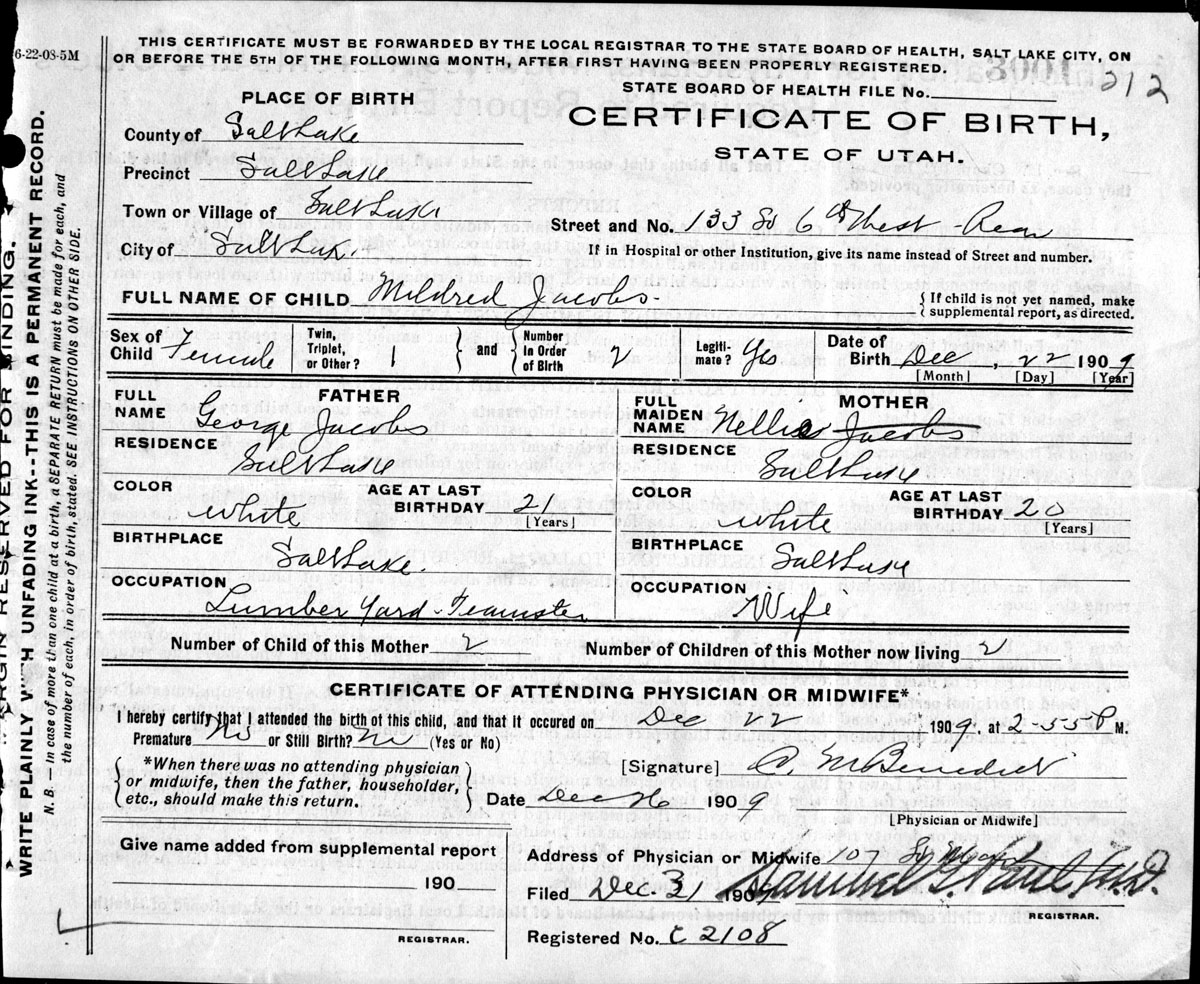 6-22-08-5M
THIS CERTIFICATE MUST BE FORWARDED BY THE LOCAL REGISTRAR TO THE STATE BOARD OF HEALTH, SALT LAKE CITY, ON
OR BEFORE THE 5TH OF THE FOLLOWING MONTH, AFTER FIRST HAVING BEEN PROPERLY REGISTERED.
STATE BOARD OF HEALTH FILE No. 212
PLACE OF BIRTH
CERTIFICATE OF BIRTH,
STATE OF UTAH.
County of Salt Lake
Precinct Salt Lake
Town or Village of Salt Lake
Street and No. 133 So 6th West - Rear
City of Salt Lak.
If in Hospital or other Institution, give its name instead of Street and number.
FULL NAME OF CHILD Mildred Jacobs.
{ If child is not yet named, make
supplemental report, as directed.
Sex of Child Female
Twin, Triplet, or Other? 1 } and { Number in Order of Birth 2
Legiti-mate? Yes
Date of Birth Dec, 22 1909
[Month] [Day] [Year]
FATHER
FULL NAME George Jacobs
RESIDENCE Salt Lake
COLOR White
AGE AT LAST BIRTHDAY 21
[Years]
BIRTHPLACE Salt Lake.
OCCUPATION Lumber Yard-Teamster
MOTHER
FULL MAIDEN NAME Nellie Jacobs
RESIDENCE Salt Lake
COLOR White
AGE AT LAST BIRTHDAY 20
[Years]
BIRTHPLACE Salt Lake
OCCUPATION Wife
Number of Child of this Mother 2
Number of Children of this Mother now living 2
CERTIFICATE OF ATTENDING PHYSICIAN OR MIDWIFE*
I hereby certify that I attended the birth of this child, and that it occured on Dec 22 1909, at 2-55 P M.
Premature No or Still Birth? no (Yes or No)
{ *When there was no attending physician
or midwife, then the father, householder,
etc., should make this return. }
[Signature] C. M Benedict
Date Dec 26 1909
[Physician or Midwife]
Give name added from supplemental report
190
REGISTRAR.
Address of Physician or Midwife 107 So
Filed Dec. 31 1909 Samuel G. Paul, M.D.
REGISTRAR.
Registered No. C 2108
MARGIN RESERVED FOR BINDING.
WRITE PLAINLY WITH UNFADING INK--THIS IS A PERMANENT RECORD.
N. B. — In case of more than one child at a birth, a SEPARATE RETURN must be made for each, and
the number of each, in order of birth, stated. SEE INSTRUCTIONS ON OTHER SIDE.